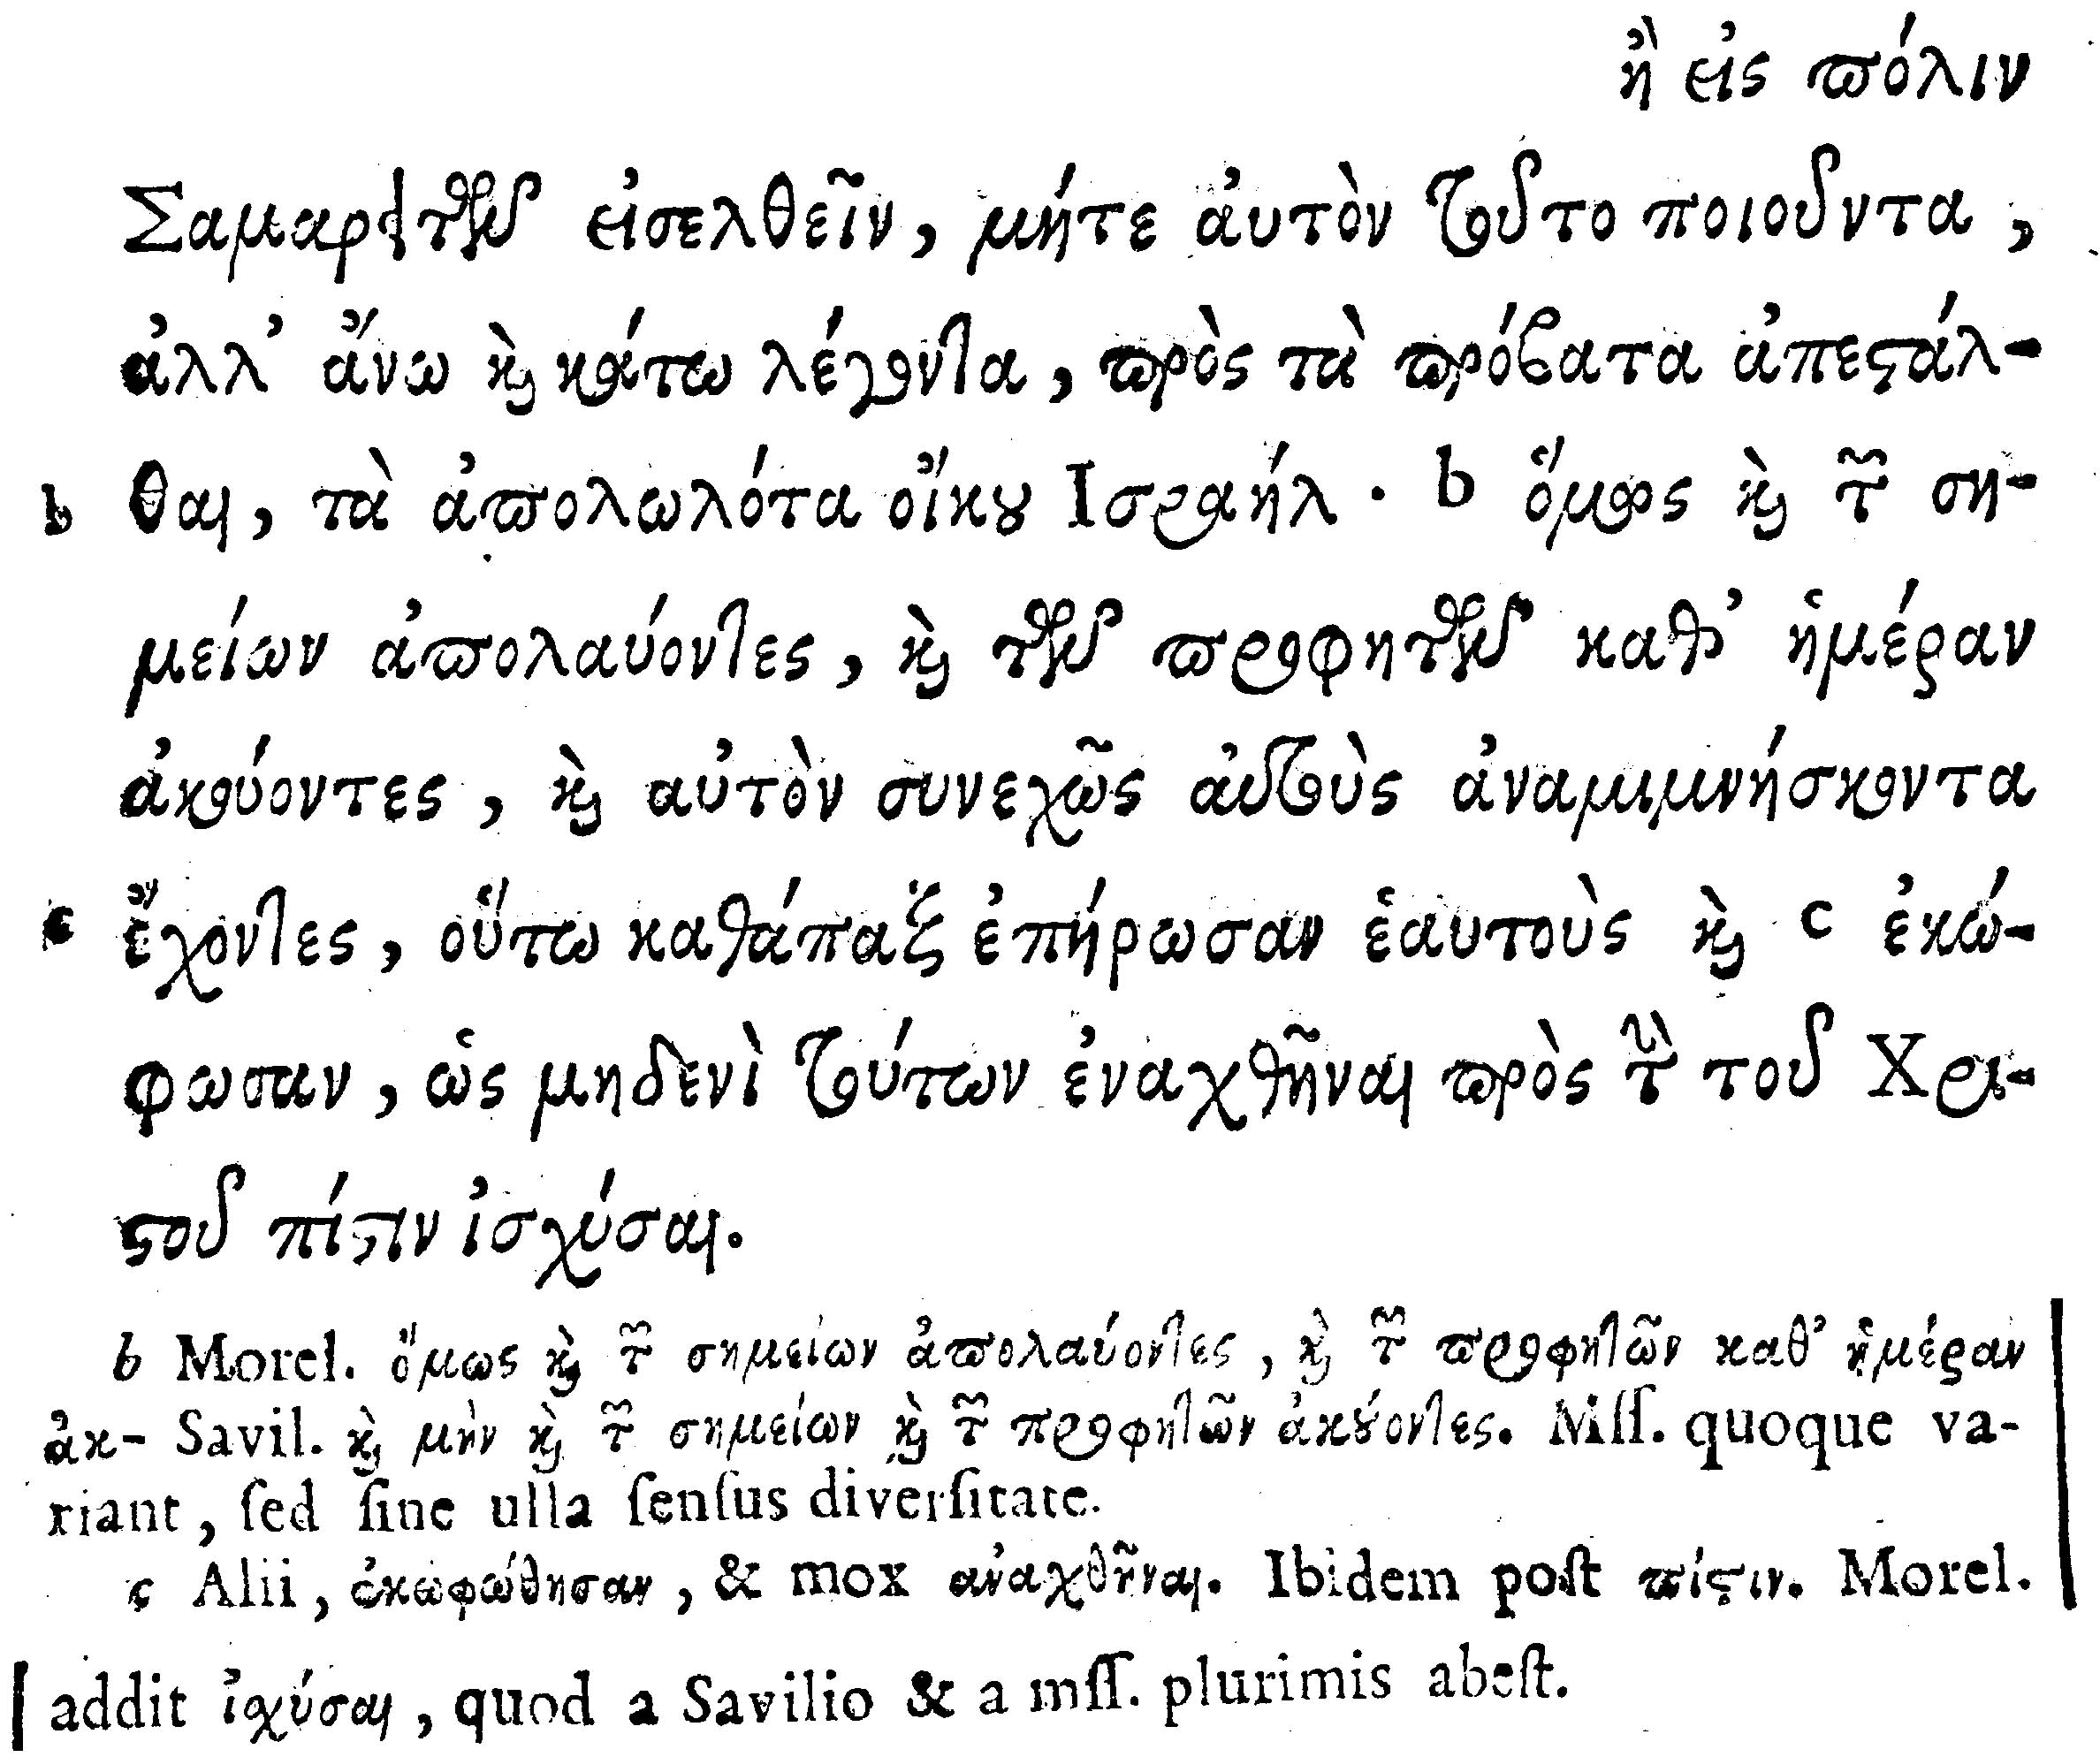 ἢ εἰς πόλιν
Σαμαρειτῶν εἰσελθεῖν, μήτε ἀυτὸν τοῦτο ποιοῦντα,
ἀλλ' ἄνω καὶ κάτω λέγοντα, πρὸς τὰ πρόβατα ἀπεστάλ-
b θαι, τὰ ἀπολωλότα οἴκου Ισραήλ. b ὅμως καὶ τῶν ση-
μείων ἀπολαύοντες, καὶ τῶν προφητῶν καθ' ἡμέραν
ἀκούοντες, καὶ αὐτὸν συνεχῶς ἀυτοὺς ἀναμιμνήσκοντα
c ἔχοντες, οὕτω καθάπαξ ἐπήρωσαν ἑαυτοὺς καὶ c ἐκώ-
φωσαν, ὡς μηδενὶ τούτων ἐναχθῆναι πρὸς τὴν τοῦ Χρι-
στοῦ πίστιν ἰσχύσαι.
b Morel. ὅμως καὶ τῶν σημείων ἀπολαύοντες, καὶ τῶν προφητῶν καθ' ἡμέραν
ἀκ- Savil. καὶ μὴν καὶ τῶν σημείων καὶ τῶν προφητῶν ἀκούοντες. Mſſ. quoque va-
riant, ſed ſine ulla ſenſus diverſitate.
c Alii, ἐκωφώθησαν, & mox ἀναχθῆναι. Ibidem poſt πίστιν. Morel.
addit ἰχύσαι, quod a Savilio & a mſſ. plurimis abeſt.